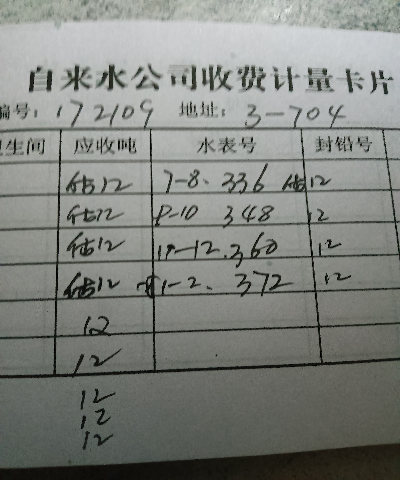 自来水公司收费计量卡片
编号: 172109 地址: 3-704
卫生间 应收吨 水表号 封铅号
估12 7-8. 336 估12
估12 9-10 348 12
估12 11-12. 360 12
估12 1-2. 372 12
12
12
12
12
12